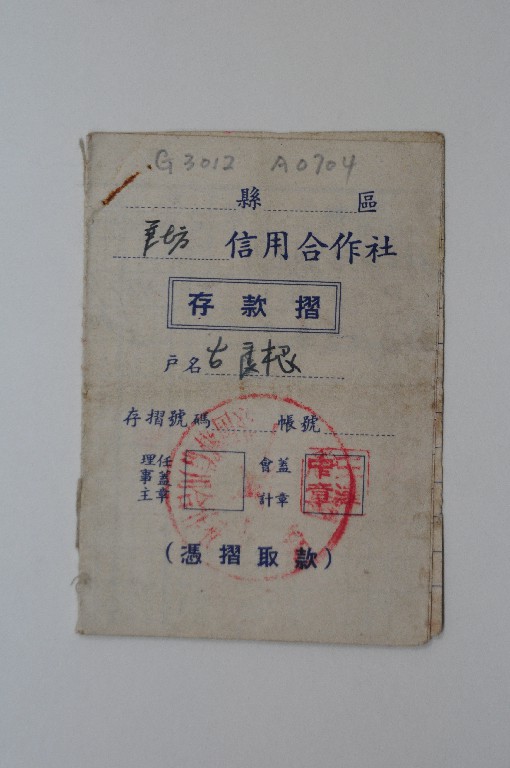 G3012 A0704
縣 區
信用合作社
存款摺
戶名 古良根
存摺號碼 帳號
理事主任蓋章 會計蓋章
(憑摺取款)